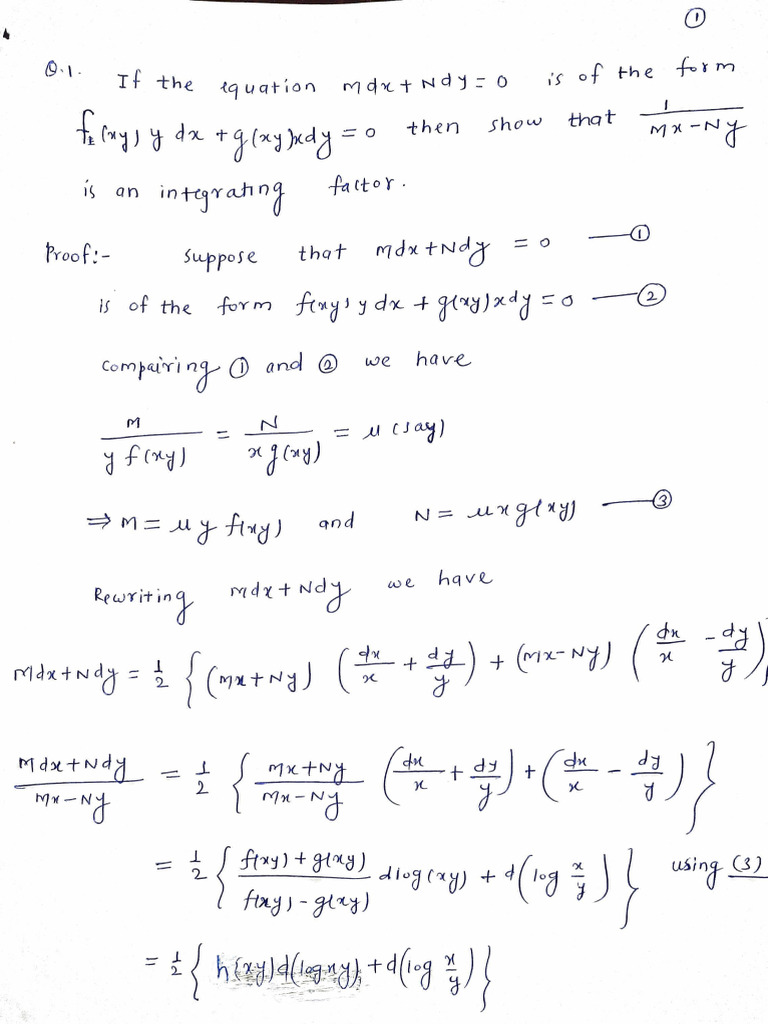 ①
Q.1. If the equation Mdx+Ndy=0 is of the form
f(xy) y dx + g(xy)xdy = 0 then show that 1/(Mx-Ny)
is an integrating factor.
Proof:- Suppose that Mdx+Ndy = 0 —①
is of the form f(xy) y dx + g(xy)xdy = 0 —②
Compairing ① and ② we have
M/(y f(xy)) = N/(x g(xy)) = μ (say)
⇒ M = μ y f(xy) and N = μ x g(xy) —③
Rewriting Mdx + Ndy we have
Mdx+Ndy = 1/2 { (Mx+Ny) (dx/x + dy/y) + (Mx-Ny) (dx/x - dy/y)
(Mdx+Ndy)/(Mx-Ny) = 1/2 { (Mx+Ny)/(Mx-Ny) (dx/x + dy/y) + (dx/x - dy/y) }
= 1/2 { (f(xy)+g(xy))/(f(xy)-g(xy)) dlog(xy) + d(log x/y) } using (3)
= 1/2 { h(xy)d(log xy) + d(log x/y) }